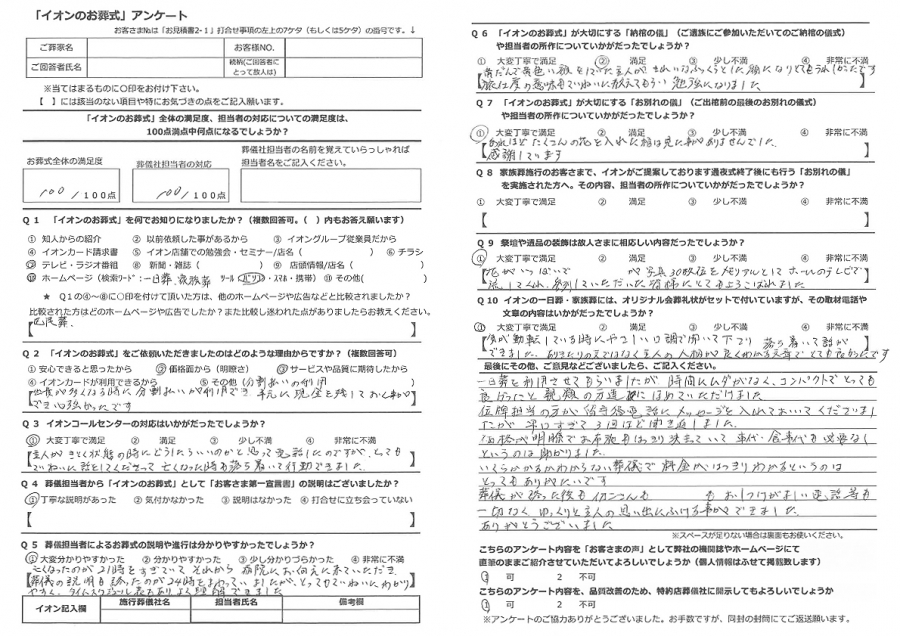 「イオンのお葬式」アンケート
お客さま№は「お見積書2-1」打合せ事項の左上の7ケタ（もしくは5ケタ）の番号です。↓
ご葬家名
お客様NO.
ご回答者氏名
続柄(ご回答者にとって故人は)
※当てはまるものに○印をお付け下さい。
【　】には該当のない項目や特にお気づきの点をご記入願います。
「イオンのお葬式」全体の満足度、担当者の対応についての満足度は、
100点満点中何点になるでしょうか？
お葬式全体の満足度
葬儀社担当者の対応
葬儀社担当者の名前を覚えていらっしゃれば
担当者名をご記入ください。
100/100点
100/100点
Q 1 「イオンのお葬式」を何でお知りになりましたか？（複数回答可。（　）内もお答え願います）
① 知人からの紹介　② 以前依頼した事があるから　③ イオングループ従業員だから
④ イオンカード請求書　⑤ イオン店舗での勉強会・セミナー/店名（　）　⑥ チラシ
⑦ テレビ・ラジオ番組　⑧ 新聞・雑誌（　）　⑨ 店頭情報/店名（　）
⑩ ホームページ（検索ﾜｰﾄﾞ：一日葬、家族葬　ﾂｰﾙ パソコン・スマホ・携帯）　⑪ その他(　)
★ Q1の④～⑧に○印を付けて頂いた方は、他のホームページや広告などと比較されましたか？
比較された方はどのホームページや広告でしたか？また比較し迷われた点がありましたらお教えください。
【区民葬、】
Q 2 「イオンのお葬式」をご依頼いただきましたのはどのような理由からですか？（複数回答可）
①安心できると思ったから　②価格面から（明瞭さ）　③サービスや品質に期待したから
④イオンカードが利用できるから　⑤その他（分割払いの利用　）
【　出費が多くなる時に分割払いが利用でき　手元に現金を残しておくことが
できて心強かったです】
Q 3 イオンコールセンターの対応はいかがだったでしょうか？
① 大変丁寧で満足　② 満足　③ 少し不満　④ 非常に不満
【主人がきとく状態の時にどうしたらいいのかと思って電話したのですが、とても
ていねいに話をしてくださって亡くなった時も落ち着いて行動できました。】
Q 4 葬儀担当者から「イオンのお葬式」として「お客さま第一宣言書」の説明はございましたか？
①丁寧な説明があった　②気付かなかった　③説明はなかった　④打合せに立ち会っていない
【　】
Q 5 葬儀担当者によるお葬式の説明や進行は分かりやすかったでしょうか？
①大変分かりやすかった　②分かりやすかった　③少し分かりづらかった　④非常に不満
【亡くなったのが21時をすぎていて　それから　病院にお向えに来ていただき
葬儀の説明も終ったのが24時をまわっていましたが、とってもていねいにわかり
やすく、タイムスケジュール表もあり よく理解できました】
イオン記入欄
施行葬儀社名
担当者氏名
備考欄
Q 6 「イオンのお葬式」が大切にする「納棺の儀」（ご遺族にご参加いただいてのご納棺の儀式）
や担当者の所作についていかがだったでしょうか？
① 大変丁寧で満足　② 満足　③ 少し不満　④ 非常に不満
【　ていた主人が きれいなふっくらとした顔になりとてもうれしかったです
旅仕度の意味もていねいに教えてもらい 勉強になりました】
Q 7 「イオンのお葬式」が大切にする「お別れの儀」（ご出棺前の最後のお別れの儀式）
や担当者の所作についていかがだったでしょうか？
① 大変丁寧で満足　② 満足　③ 少し不満　④ 非常に不満
【あれほどたくさんの花を入れた棺は見た事がありませんでした。
感謝しています】
Q 8 家族葬施行のお客さまで、イオンがご提案しております通夜式終了後にも行う「お別れの儀」
を実施された方へ。その内容、担当者の所作についていかがだったでしょうか？
① 大変丁寧で満足　② 満足　③ 少し不満　④ 非常に不満
【　】
Q 9 祭壇や遺品の装飾は故人さまに相応しい内容だったでしょうか？
① 大変丁寧で満足　② 満足　③ 少し不満　④ 非常に不満
【花がいっぱいで　　が写真30枚位をメモリアルとしてホールのテレビで
流してくれ、参列していただいた皆様にとてもよろこばれました】
Q 10 イオンの一日葬・家族葬には、オリジナル会葬礼状がセットで付いていますが、その取材電話や
文章の内容はいかがだったでしょうか？
① 大変丁寧で満足　② 満足　③ 少し不満　④ 非常に不満
【気が動転している時にやさしい口調で聞いて下さり　落ち着いて話が
できました。ありきたりの文ではなく主人の人柄が良くわかる文章でとても良かったです】
最後にその他、ご意見などございましたら、ご記入ください。
一日葬を利用させてもらいましたが 時間にムダがなく、コンパクトでとっても
良かったと 親類の方達にほめていただけました
位牌担当の方が 留守番電話にメッセージを入れておいてくださいまし
たが 早口すぎて3回ほど聞き返しました。
価格が明瞭でお布施もはっきり決まっていて 車代・食事代も必要なし
というのは助かりました。
いくらかかるかわからない葬儀で 料金がはっきりわかるというのは
とってもありがたいです
葬儀が終った後も イオンさんも　　も おしつけがましい電話等も
一切なく ゆっくりと主人の思い出にふける事ができました。
ありがとうございました
※スペースが足りない場合は裏面もお使いください。
こちらのアンケート内容を「お客さまの声」として弊社の機関誌やホームページにて
直筆のままご紹介させていただいてよろしいでしょうか（個人情報はふせて掲載致します）
1　可　2　不可
こちらのアンケート内容を、品質改善のため、特約店葬儀社に開示してもよろしいでしょうか
1　可　2　不可
※アンケートのご協力ありがとうございました。お手数ですが、同封の封筒にてご返送願います。